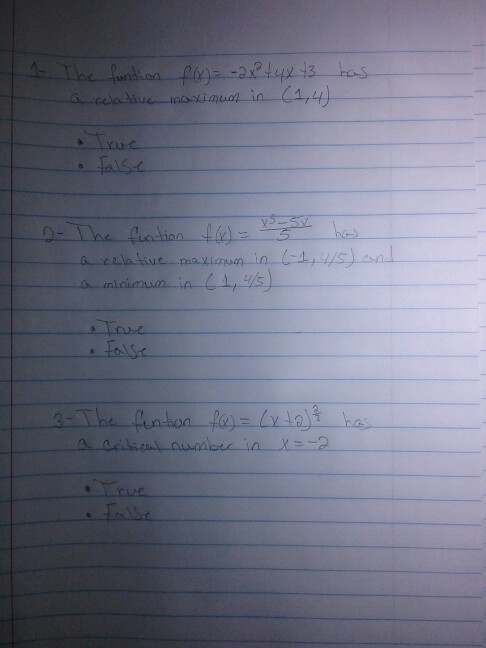 1- The funtion f(x) = -2x²+4x+3 has
a relative maximum in (1,4)
• True
• False
2- The funtion f(x) = x⁵-5x/5 has
a relative maximum in (-1, 4/5) and
a minimum in (1, 4/5)
• True
• False
3- The funtion f(x) = (x+2)^2/3 has
a critical number in x = -2
• True
• False